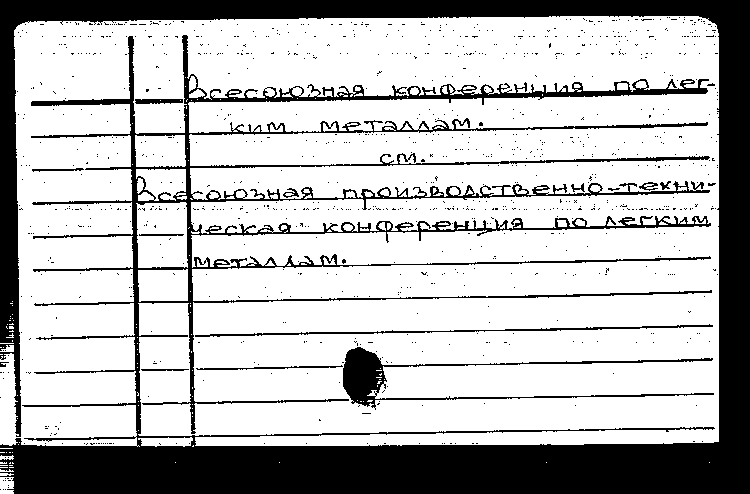 Всесоюзная конференция по лег-
ким металлам.
см.
Всесоюзная производственно-техни-
ческая конференция по легким
металлам.